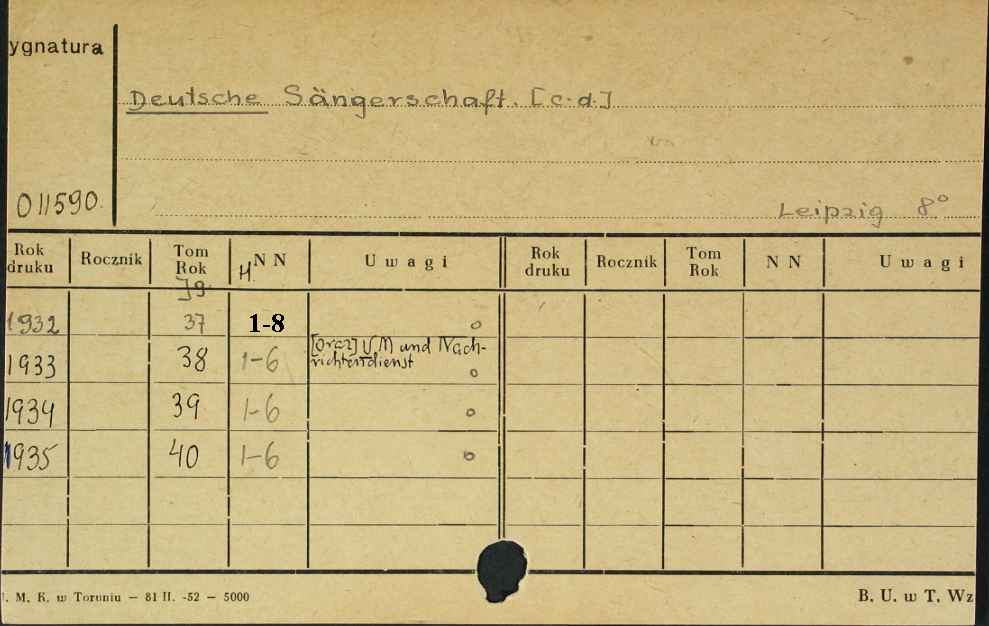 ygnatura
Deutsche Sängerschaft. [c.d.]
011590.
Leipzig 8°
Rok druku Rocznik Tom Rok Jg. H. NN Uwagi Rok druku Rocznik Tom Rok NN Uwagi
1932 37 1-8
1933 38 1-6 [Oraz] und Nach-
richtendienst
1934 39 1-6
1935 40 1-6
. M. K. w Toruniu — 81 II. -52 — 5000
B. U. w T. Wz